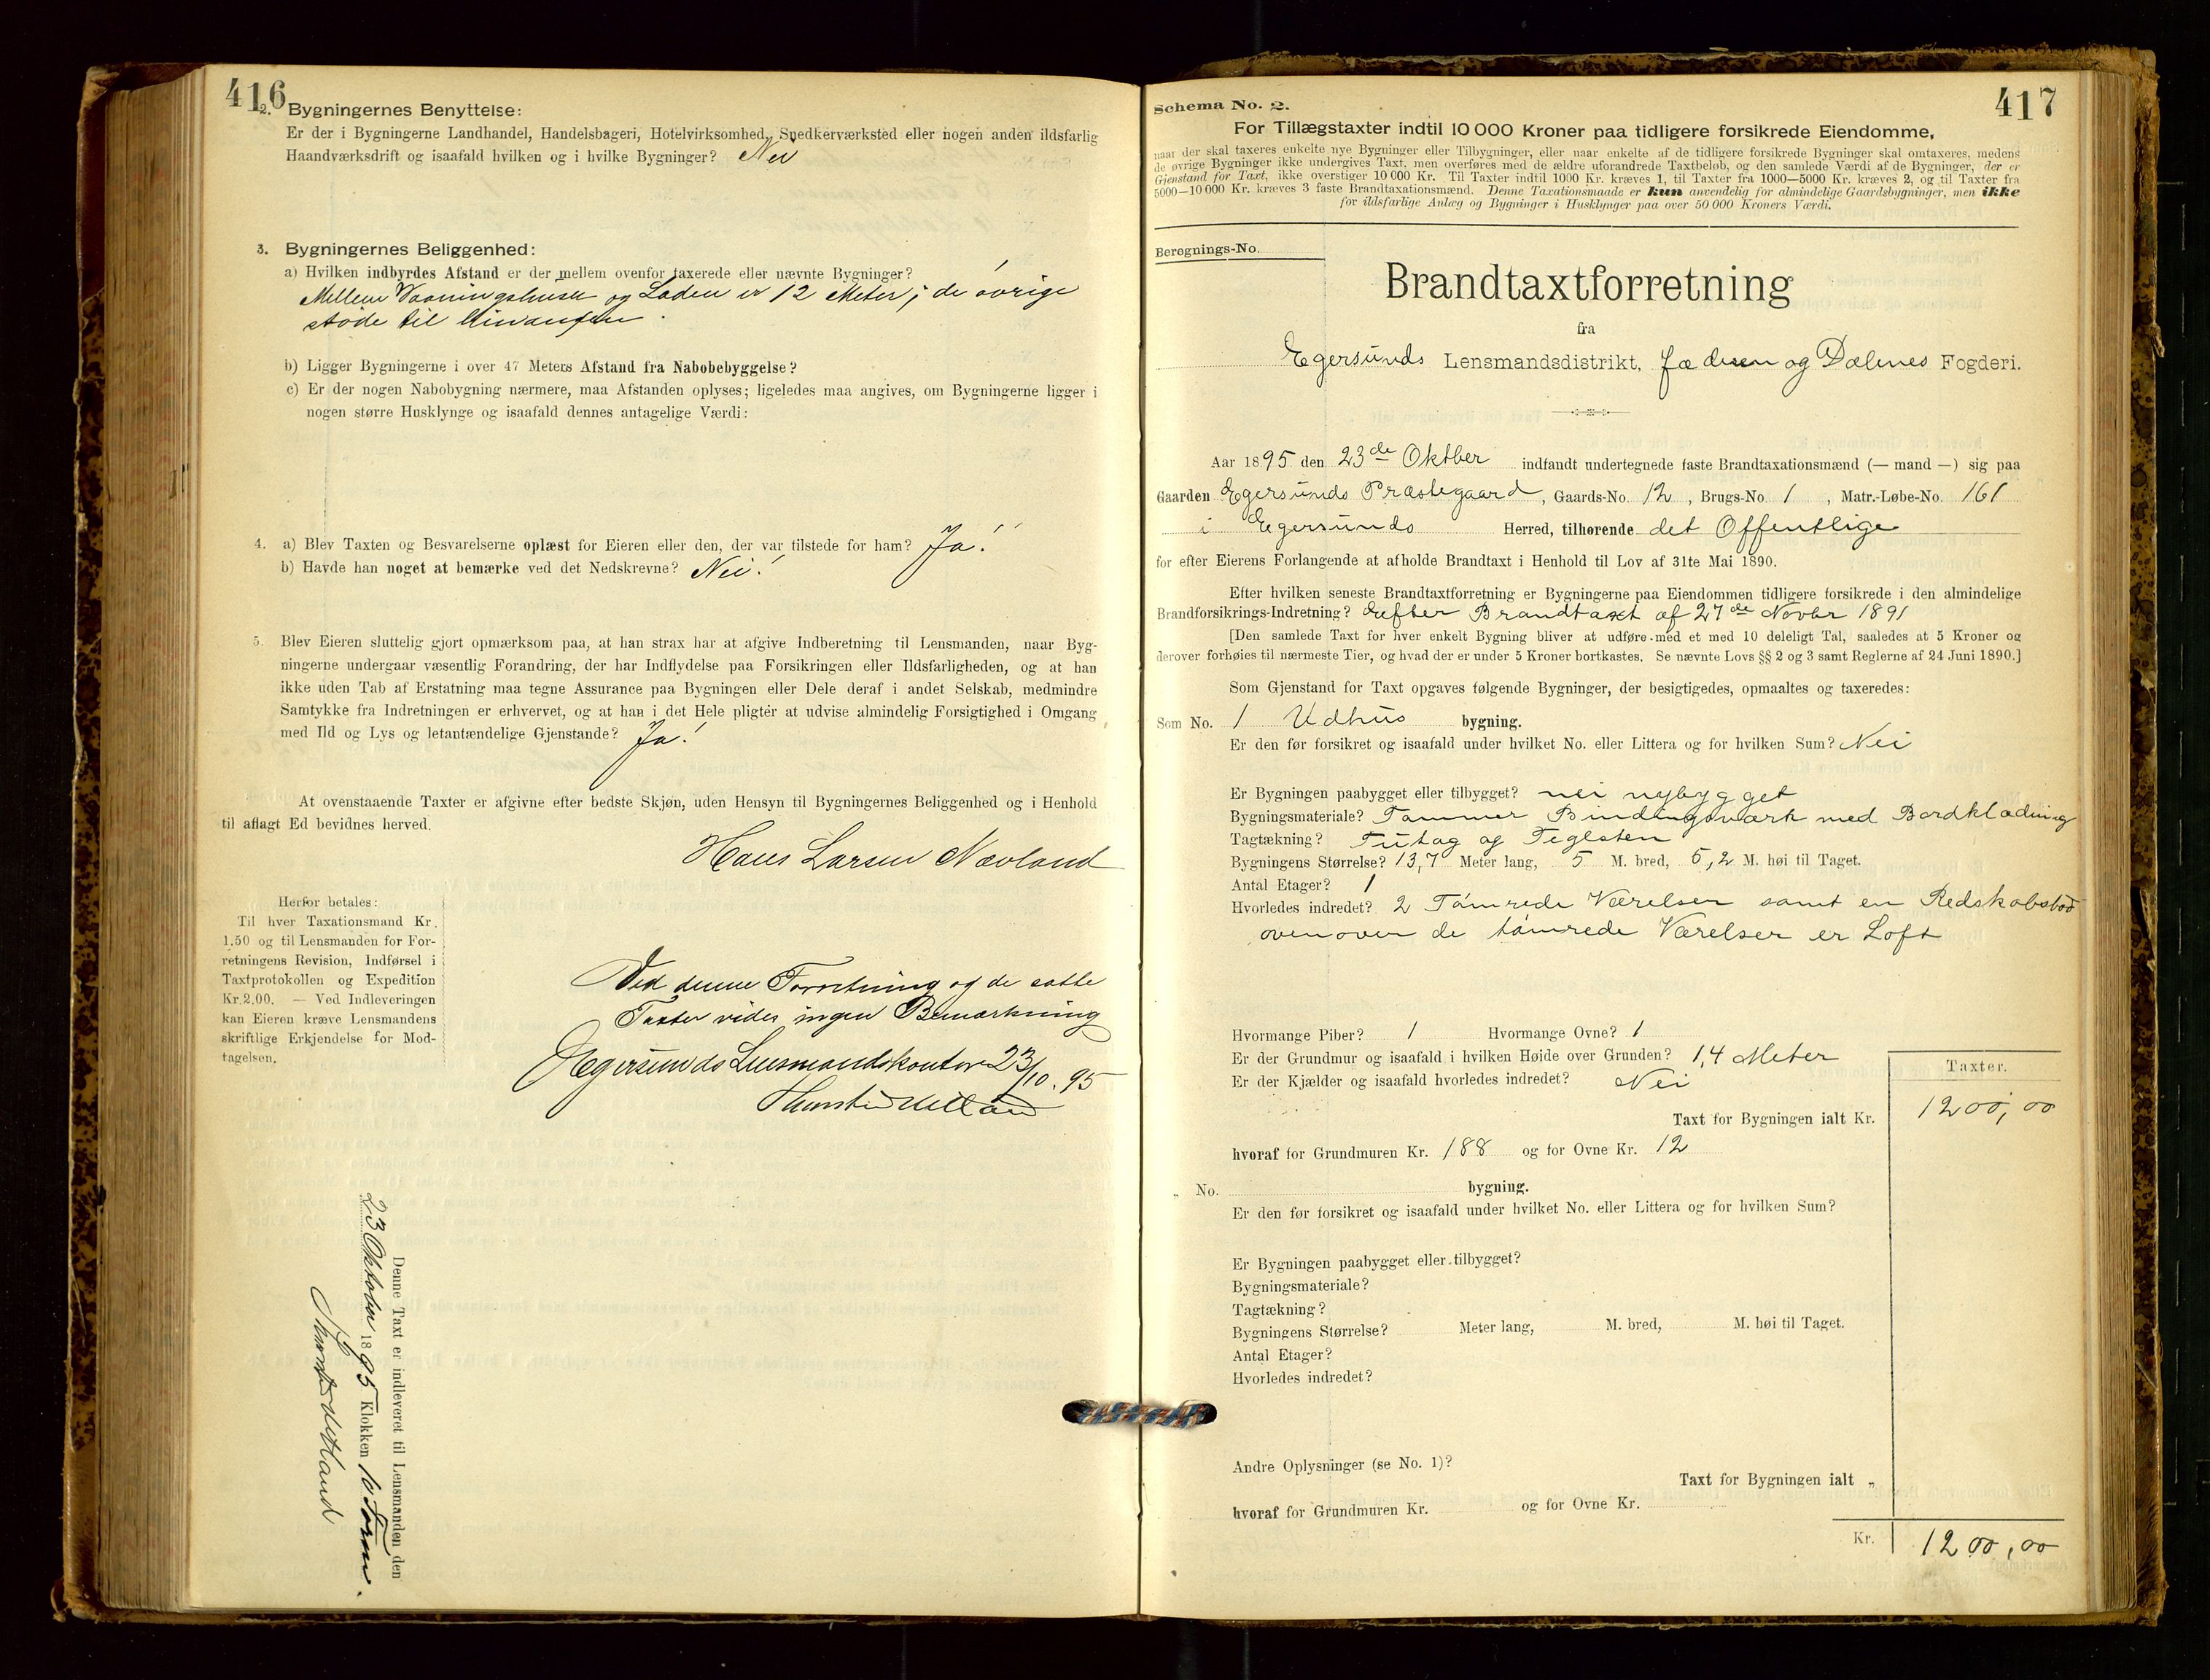 416
2. Bygningernes Benyttelse:
Er der i Bygningerne Landhandel, Handelsbageri, Hotelvirksomhed, Snedkerværksted eller nogen anden ildsfarlig
Haandværksdrift og isaafald hvilken og i hvilke Bygninger? Nei
3. Bygningernes Beliggenhed:
a) Hvilken indbyrdes Afstand er der mellem ovenfor taxerede eller nævnte Bygninger?
Mellem Vaaningshuset og Laden er 12 Meter; de øvrige
støde til hinanden.
b) Ligger Bygningerne i over 47 Meters Afstand fra Nabobebyggelse?
c) Er der nogen Nabobygning nærmere, maa Afstanden oplyses; ligeledes maa angives, om Bygningerne ligger i
nogen større Husklynge og isaafald dennes antagelige Værdi:
4. a) Blev Taxten og Besvarelserne oplæst for Eieren eller den, der var tilstede for ham? Ja!
b) Havde han noget at bemærke ved det Nedskrevne? Nei!
5. Blev Eieren sluttelig gjort opmærksom paa, at han strax har at afgive Indberetning til Lensmanden, naar Byg-
ningerne undergaar væsentlig Forandring, der har Indflydelse paa Forsikringen eller Ildsfarligheden, og at han
ikke uden Tab af Erstatning maa tegne Assurance paa Bygningen eller Dele deraf i andet Selskab, medmindre
Samtykke fra Indretningen er erhvervet, og at han i det Hele pligter at udvise almindelig Forsigtighed i Omgang
med Ild og Lys og letantændelige Gjenstande? Ja!
At ovenstaaende Taxter er afgivne efter bedste Skjøn, uden Hensyn til Bygningernes Beliggenhed og i Henhold
til aflagt Ed bevidnes herved.
Hans Larsen Nævland
Herfor betales:
Til hver Taxationsmand Kr.
1.50 og til Lensmanden for For-
retningens Revision, Indførsel i
Taxtprotokollen og Expedition
Kr. 2.00. — Ved Indleveringen
kan Eieren kræve Lensmandens
skriftlige Erkjendelse for Mod-
tagelsen.
Ved denne Forretning og de satte
Taxter vides ingen Bemærkning
Egersunds Lensmandskontor 23/10. 95
Denne Taxt er indleveret til Lensmanden den
23 Oktober 1895 Klokken 10 Form.
417
Schema No. 2.
For Tillægstaxter indtil 10 000 Kroner paa tidligere forsikrede Eiendomme,
naar der skal taxeres enkelte nye Bygninger eller Tilbygninger, eller naar enkelte af de tidligere forsikrede Bygninger skal omtaxeres, medens
de øvrige Bygninger ikke undergives Taxt, men overføres med de ældre uforandrede Taxtbeløb, og den samlede Værdi af de Bygninger, der er
Gjenstand for Taxt, ikke overstiger 10 000 Kr. Til Taxter indtil 1000 Kr. kræves 1, til Taxter fra 1000—5000 Kr. kræves 2, og til Taxter fra
5000—10 000 Kr. kræves 3 faste Brandtaxationsmænd. Denne Taxationsmaade er kun anvendelig for almindelige Gaardsbygninger, men ikke
for ildsfarlige Anlæg og Bygninger i Husklynger paa over 50 000 Kroners Værdi.
Beregnings-No.
Brandtaxtforretning
fra
Egersunds Lensmandsdistrikt, Jæderen og Dalenes Fogderi.
Aar 1895 den 23de Oktber indfandt undertegnede faste Brandtaxationsmænd (— mand —) sig paa
Gaarden Egersunds Præstegaard, Gaards-No. 12, Brugs-No. 1, Matr.-Løbe-No. 161
i Egersunds Herred, tilhørende det Offentlige
for efter Eierens Forlangende at afholde Brandtaxt i Henhold til Lov af 31te Mai 1890.
Efter hvilken seneste Brandtaxtforretning er Bygningerne paa Eiendommen tidligere forsikrede i den almindelige
Brandforsikrings-Indretning? Efter Brandtaxt af 27de Novbr 1891
[Den samlede Taxt for hver enkelt Bygning bliver at udføre med et med 10 deleligt Tal, saaledes at 5 Kroner og
derover forhøies til nærmeste Tier, og hvad der er under 5 Kroner bortkastes. Se nævnte Lovs §§ 2 og 3 samt Reglerne af 24 Juni 1890.]
Som Gjenstand for Taxt opgaves følgende Bygninger, der besigtigedes, opmaaltes og taxeredes:
Som No. 1 Udhus bygning.
Er den før forsikret og isaafald under hvilket No. eller Littera og for hvilken Sum? Nei
Er Bygningen paabygget eller tilbygget? nei nybygget
Bygningsmateriale? Tømmer Bindingsværk med Bordklædning
Tagtækning? Tritag og Teglsten
Bygningens Størrelse? 13,7 Meter lang, 5 M. bred, 5,2 M. høi til Taget.
Antal Etager? 1
Hvorledes indredet? 2 Tømrede Værelser samt en Redskabsbod
ovenover de tømrede Værelser er Loft
Hvormange Piber? 1 Hvormange Ovne? 1
Er der Grundmur og isaafald i hvilken Høide over Grunden? 1,4 Meter
Er der Kjælder og isaafald hvorledes indredet? Nei
Taxter.
Taxt for Bygningen ialt Kr. 1200,00
hvoraf for Grundmuren Kr. 188 og for Ovne Kr. 12
„ No. bygning.
Er den før forsikret og isaafald under hvilket No. eller Littera og for hvilken Sum?
Er Bygningen paabygget eller tilbygget?
Bygningsmateriale?
Tagtækning?
Bygningens Størrelse? Meter lang, M. bred, M. høi til Taget.
Antal Etager?
Hvorledes indredet?
Andre Oplysninger (se No. 1)?
Taxt for Bygningen ialt „
hvoraf for Grundmuren Kr. og for Ovne Kr.
Kr. 1200,00